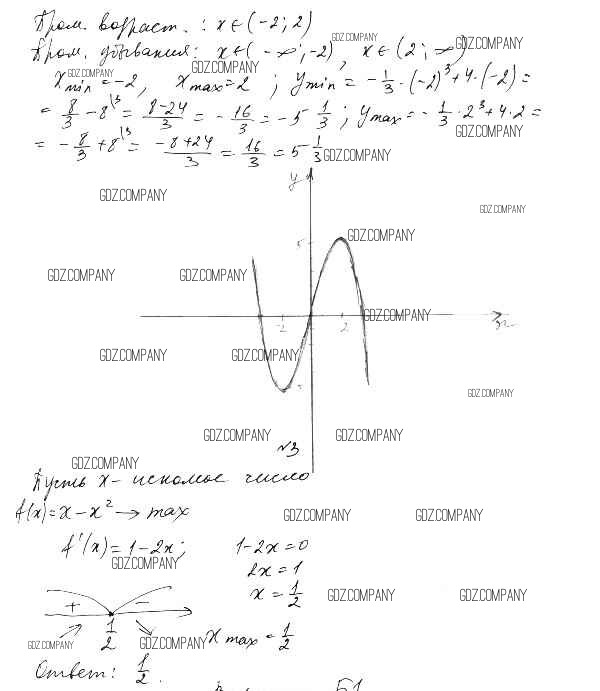 Пром. возраст. : x ∈ (-2; 2)
Пром. убывания: x ∈ (-∞; -2) GDZ.COMPANY, x ∈ (2; ∞) GDZ.COMPANY
GDZ.COMPANY GDZ.COMPANY
x min = -2, x max = 2 ; y min = -1/3 · (-2)^3 + 4 · (-2) =
= 8/3 - 8^\3 = (8-24)/3 = -16/3 = -5 1/3 ; y max = -1/3 · 2^3 + 4 · 2 =
GDZ.COMPANY
= -8/3 + 8^\3 = (-8+24)/3 = 16/3 = 5 1/3 GDZ.COMPANY
y
GDZ.COMPANY GDZ.COMPANY
5 GDZ.COMPANY
GDZ.COMPANY GDZ.COMPANY
GDZ.COMPANY
-2 2 x
GDZ.COMPANY GDZ.COMPANY
GDZ.COMPANY
GDZ.COMPANY GDZ.COMPANY
№3
GDZ.COMPANY
Пусть x - искомое число
f(x) = x - x^2 → max GDZ.COMPANY GDZ.COMPANY
f'(x) = 1 - 2x ; 1 - 2x = 0
GDZ.COMPANY 2x = 1
x = 1/2 GDZ.COMPANY GDZ.COMPANY
+ -
1/2 x max = 1/2
GDZ.COMPANY GDZ.COMPANY
Ответ: 1/2.
51